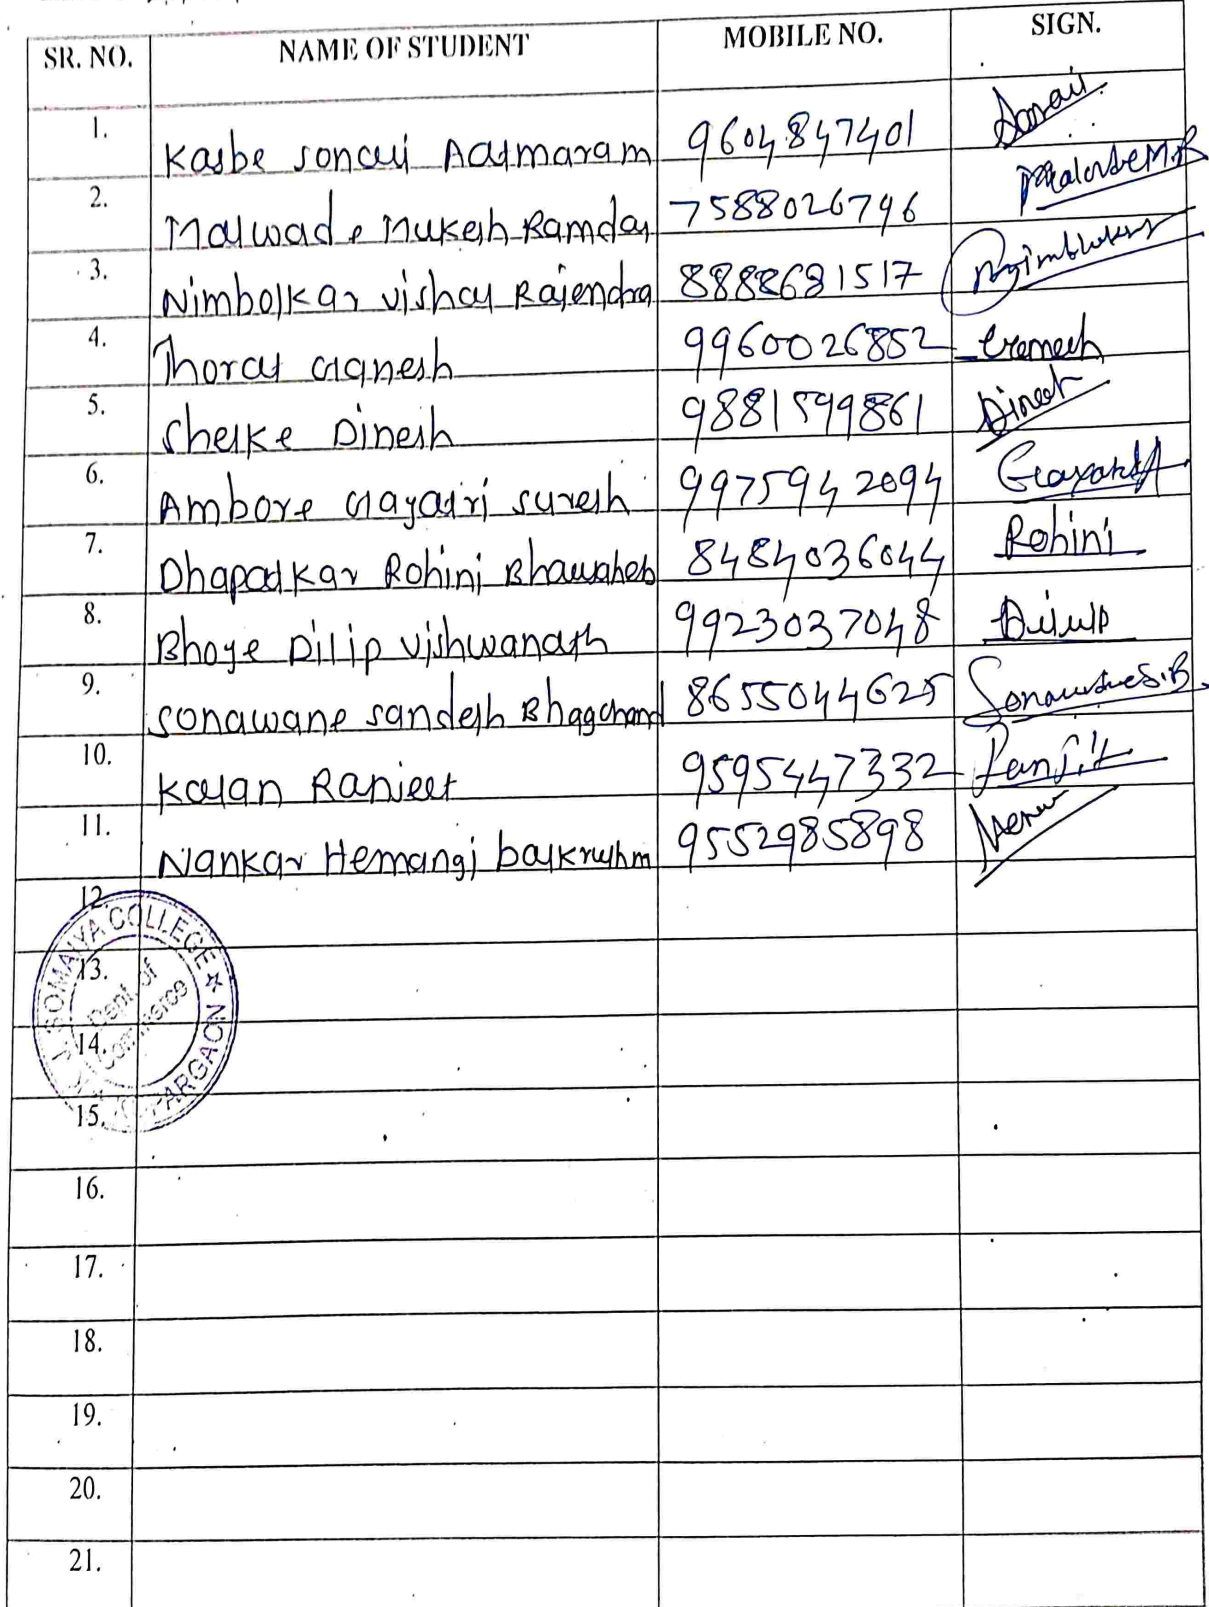 SR. NO. NAME OF STUDENT MOBILE NO. SIGN.
1. Kasbe Sonali Aatmaram 9604847401 Sonali
2. Malwade Mukesh Ramdas 7588026796 Malwade M.R
3. Nimbalkar Vishal Rajendra 8888681517
4. Thorat Ganesh 9960026852 Ganesh
5. Shelke Dinesh 9881599861 Dinesh
6. Ambore Gayatri Suresh 9975942094
7. Dhapadkar Rohini Bhausaheb 8484036044 Rohini
8. Bhoye Dilip Vishwanath 9923037048 Dilip
9. Sonawane Sandesh Bhagchand 8655044625 Sonawane S.B.
10. Ranjeet 9595447332 Ranjit
11. Nankar Hemangi balkrushn 9552985898
12.
13.
14.
15.
16.
17.
18.
19.
20.
21.
SOMAIYA COLLEGE
Dept. of
Commerce